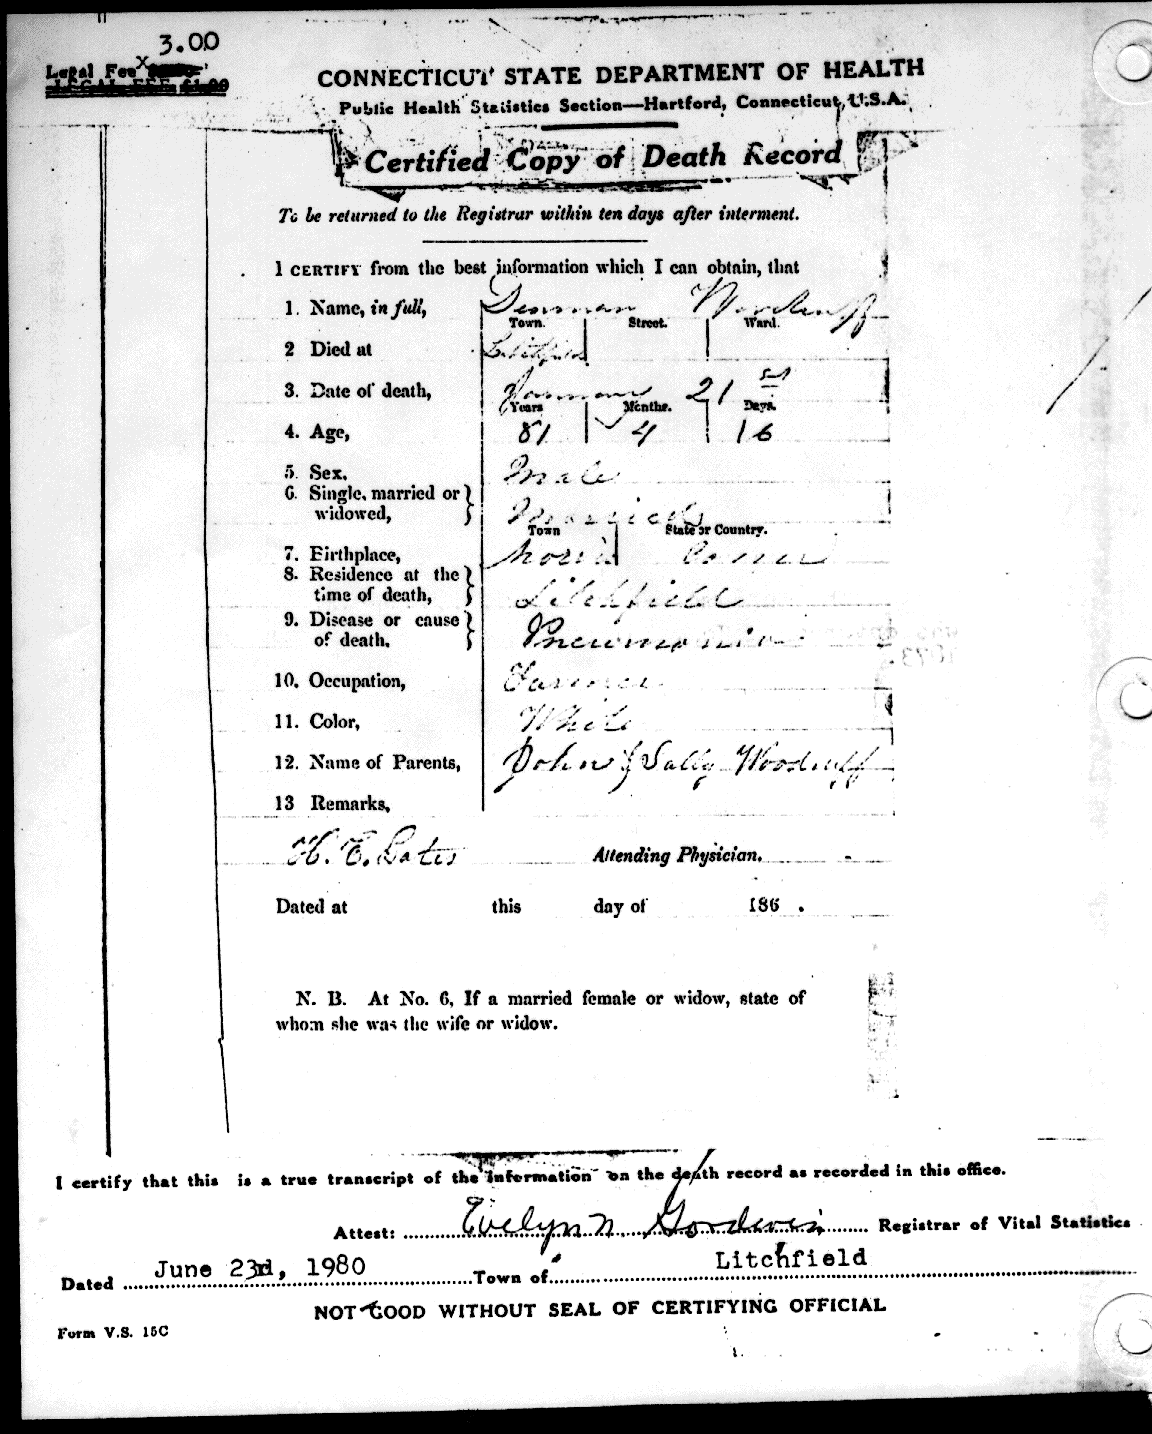 3.00
Legal Fee x
LEGAL FEE $1.00
CONNECTICUT STATE DEPARTMENT OF HEALTH
Public Health Statistics Section—Hartford, Connecticut, U.S.A.
Certified Copy of Death Record
To be returned to the Registrar within ten days after interment.
I CERTIFY from the best information which I can obtain, that
1. Name, in full, Denman Woodruff
Town. Street. Ward.
2 Died at Litchfield
3. Date of death, January 21st
Years Months. Days.
4. Age, 81 4 16
5. Sex, Male
6. Single, married or
widowed, Married
Town State or Country.
7. Birthplace, Morris Conn
8. Residence at the
time of death, Litchfield
9. Disease or cause
of death, Pneumonia
10. Occupation, Farmer
11. Color, White
12. Name of Parents, John & Sally Woodruff
13 Remarks,
H. E. Gates Attending Physician.
Dated at this day of 186 .
N. B. At No. 6, If a married female or widow, state of
whom she was the wife or widow.
I certify that this is a true transcript of the information on the death record as recorded in this office.
Attest: Evelyn N. Registrar of Vital Statistics
Dated June 23rd, 1980 Town of Litchfield
NOT GOOD WITHOUT SEAL OF CERTIFYING OFFICIAL
Form V.S. 15C